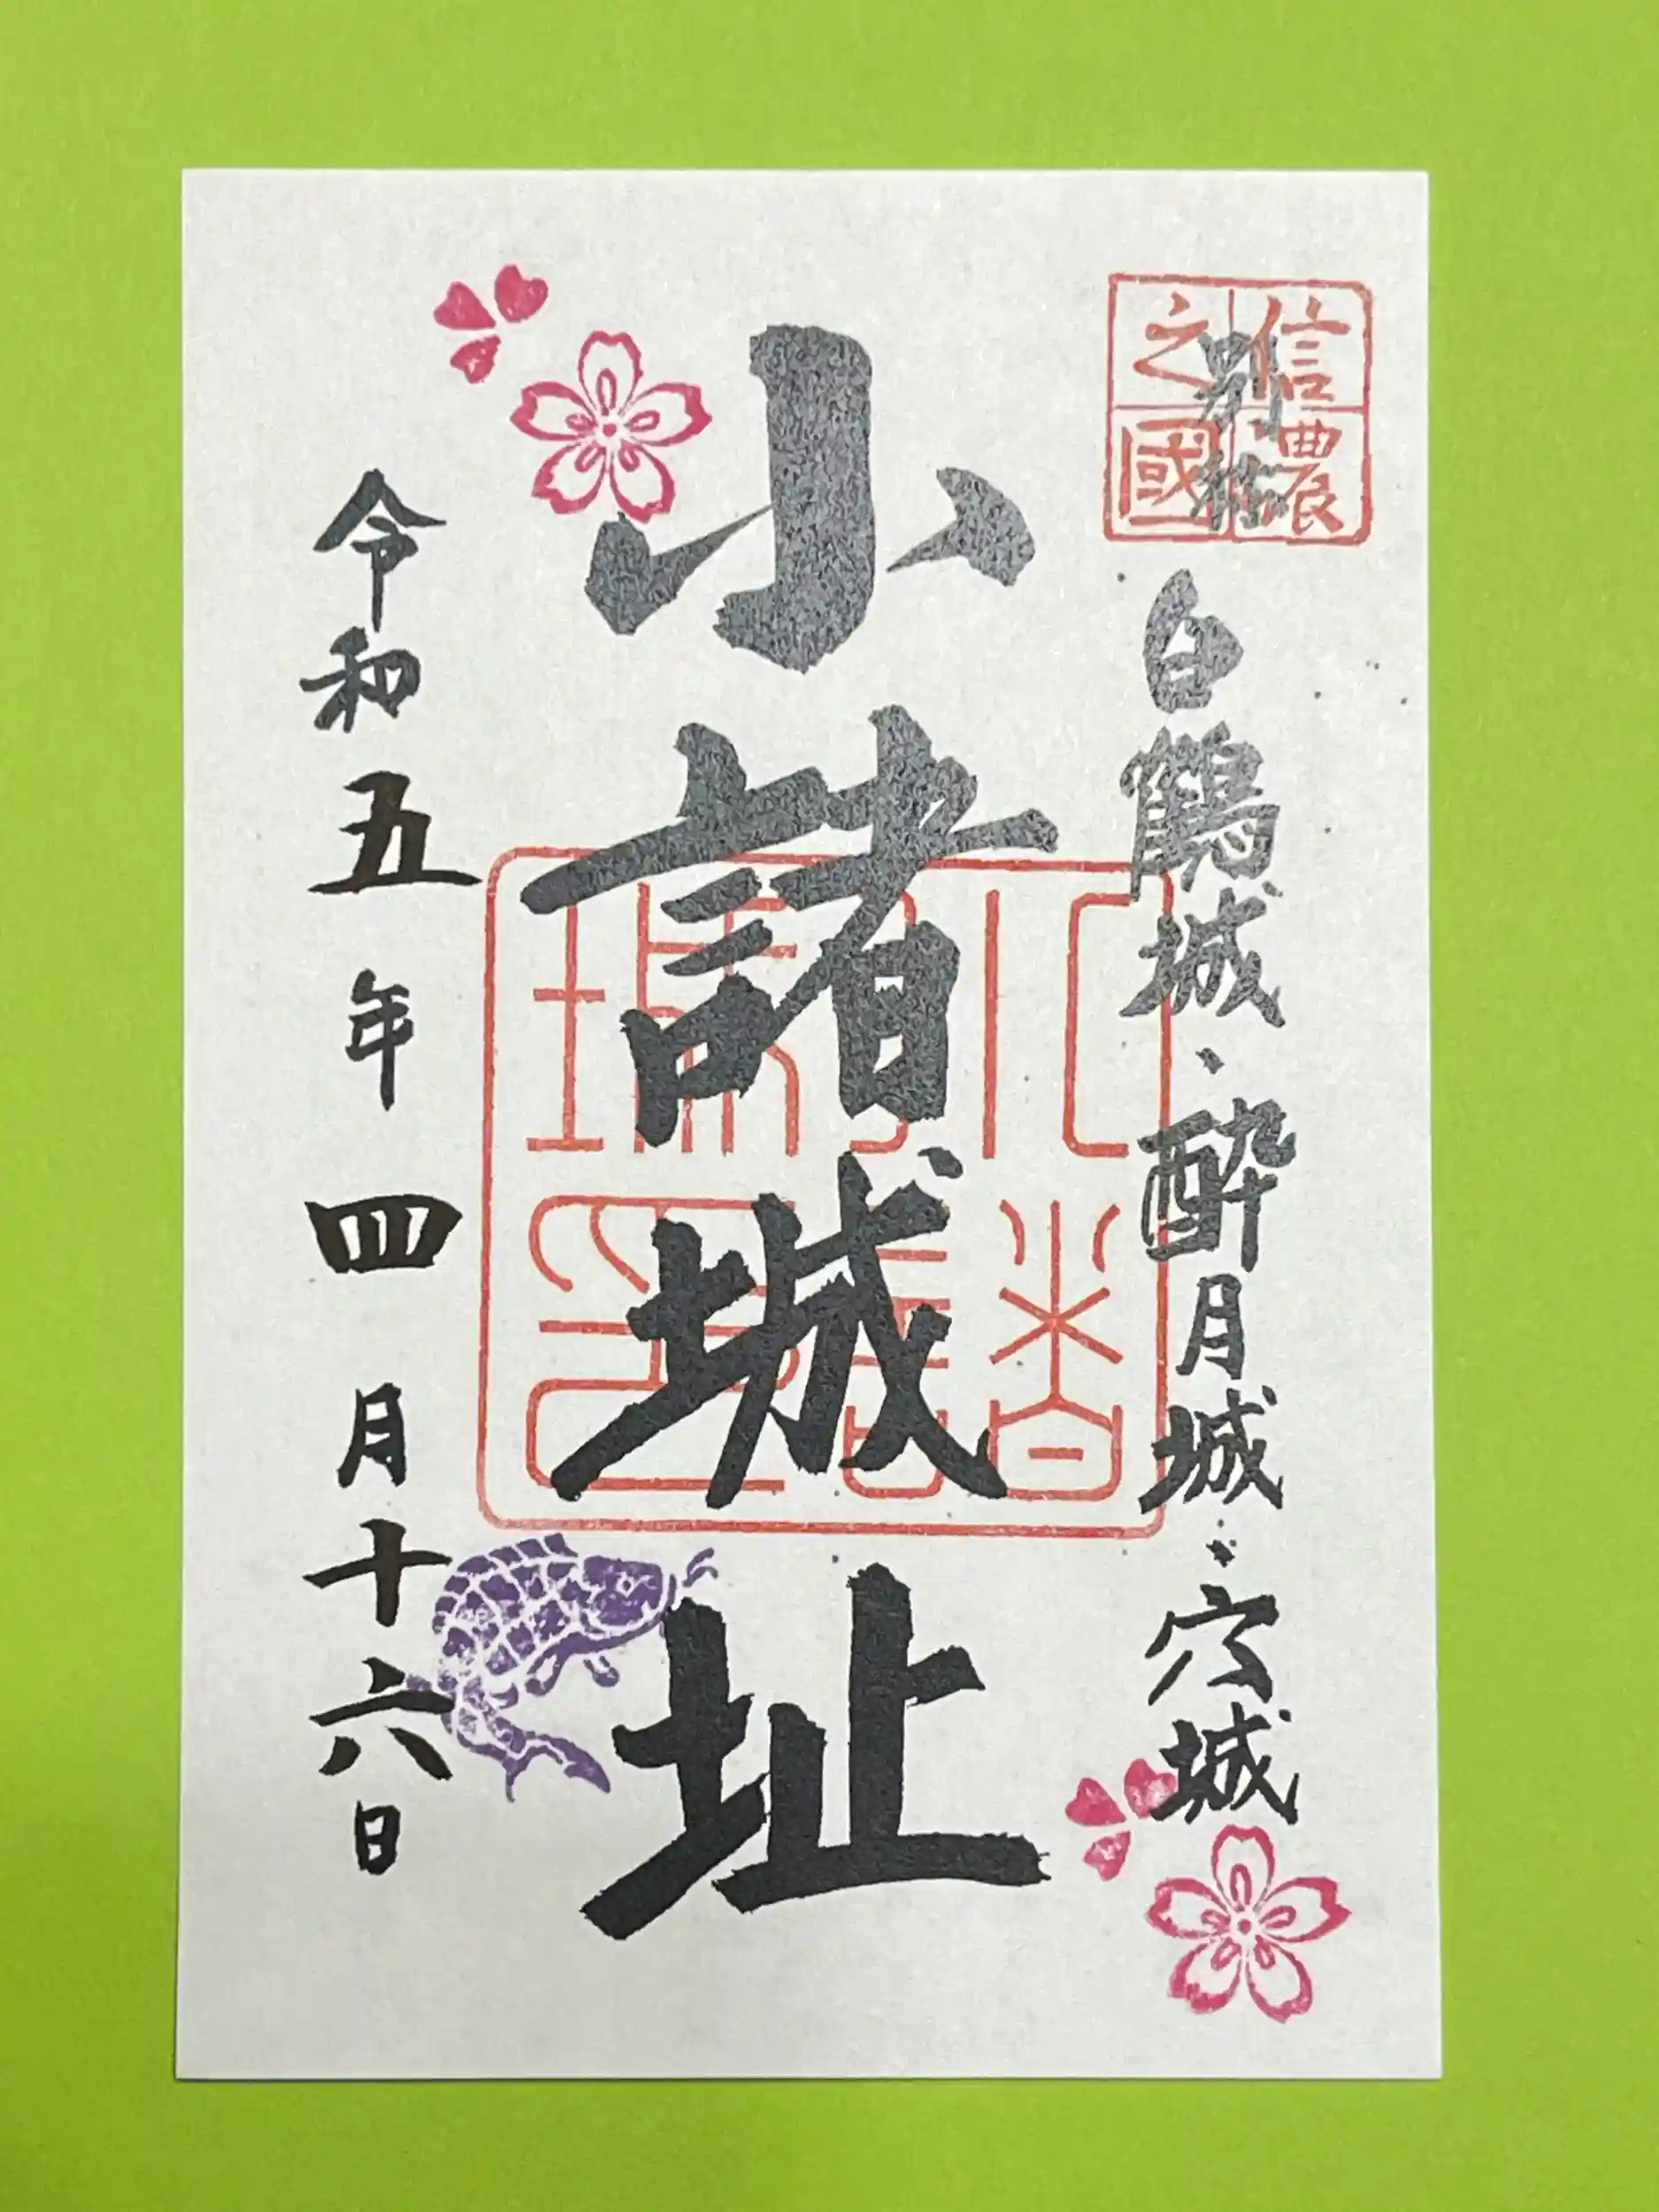 信濃之國
別称
白鶴城・酔月城・穴城
小諸城址
令和五年四月十六日